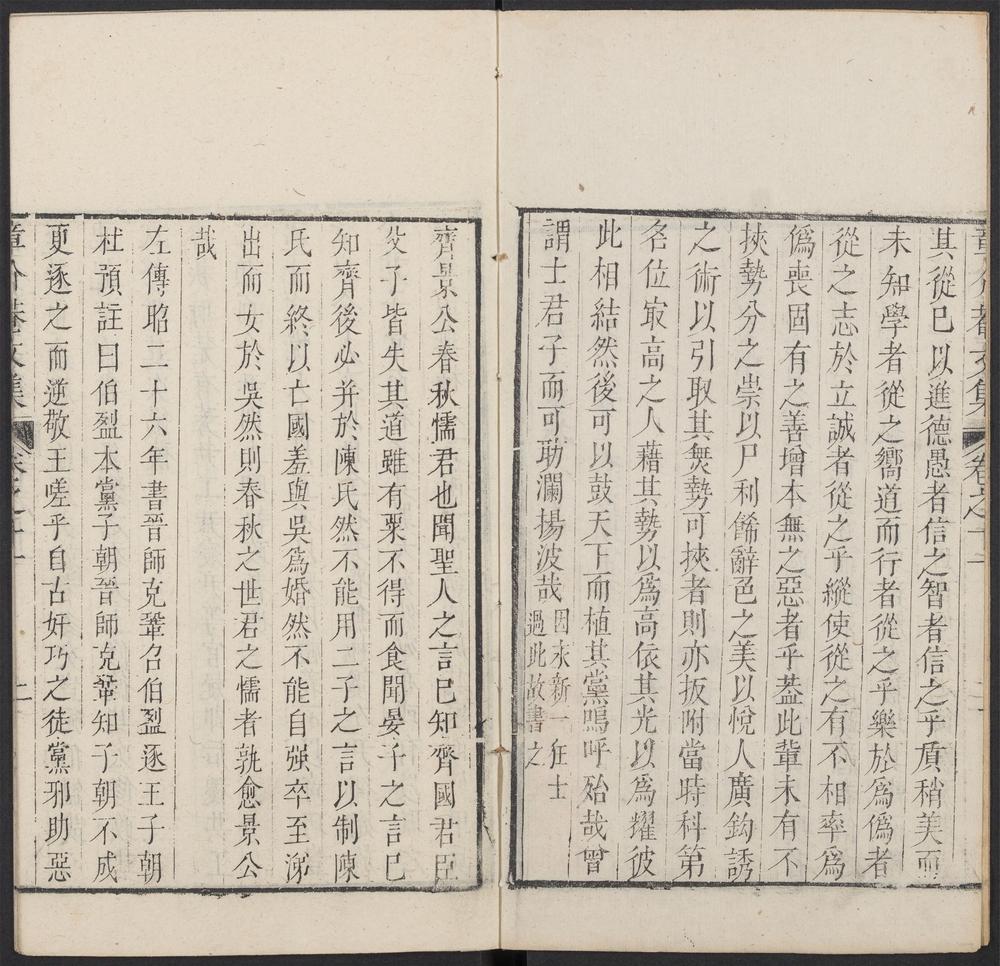 章介菴文集 卷之十一
其從已以進德愚者信之智者信之乎質稍美而
未知學者從之嚮道而行者從之乎樂於為偽者
從之志於立誠者從之乎縱使從之有不相率為
偽喪固有之善增本無之惡者乎葢此輩未有不
挾勢分之崇以尸利餙辭色之美以悅人廣鈎誘
之術以引取其煑勢可挾者則亦扳附當時科第
名位㝡高之人藉其勢以為高依其光以為耀彼
此相結然後可以鼓天下而植其黨嗚呼殆哉曾
謂士君子而可助瀾揚波哉
因永新一狂士
過此故書之
齊景公春秋懦君也聞聖人之言已知齊國君臣
父子皆失其道雖有粟不得而食聞晏子之言已
知齊後必并於陳氏然不能用二子之言以制陳
氏而終以亡國羞與吳為婚然不能自强卒至涕
出而女於吳然則春秋之世君之懦者孰愈景公
哉
左傳昭二十六年書晉師克鞏召伯盈逐王子朝
杜預註曰伯盈本黨子朝晉師克鞏知子朝不成
更逐之而逆敬王嗟乎自古奸巧之徒黨邪助惡
章介菴文集 卷之十一 二